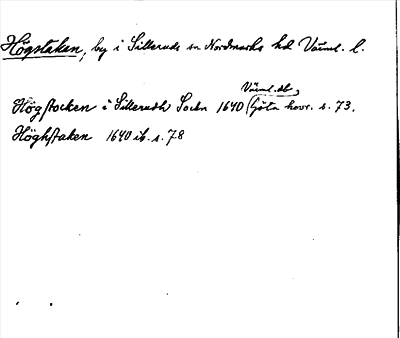 Högstaken, by i Silleruds sn Nordmarks hd Värml. l.
Värml. db
Högstocken i Sillerudh Sockn 1640 (Göta hovr. s. 73.
Höghstaken 1640 ib. s. 78